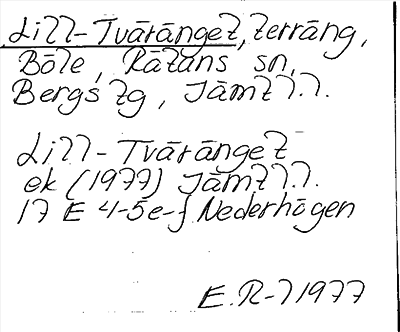 Lill-Tvärånget, terräng,
Böle, Rätans sn,
Bergs tg, Jämtl.l.
Lill-Tväränget
ek (1977) Jämtl.l.
17 E 4-5e-f Nederhögen
E.R-l 1977